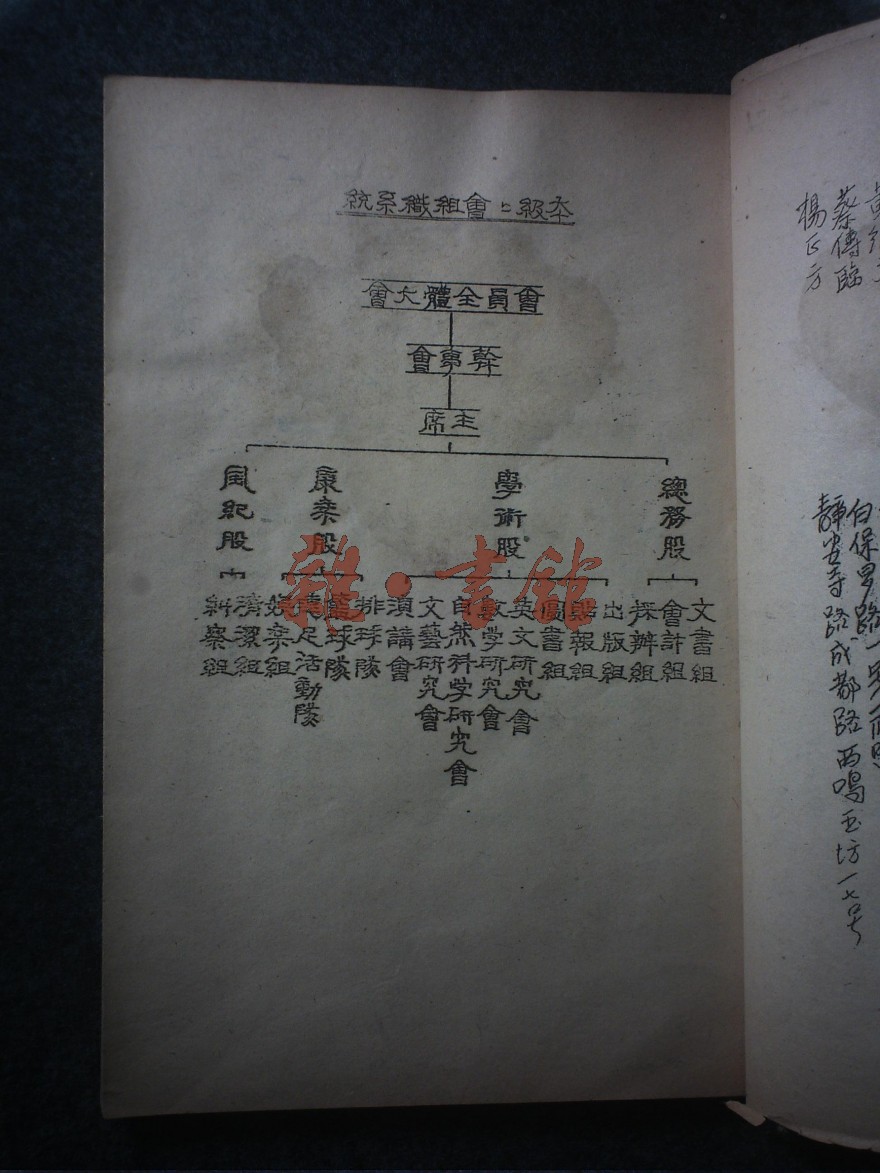 本級級會組織系統
會員全體大會
幹事會
主席
總務股
學術股
康樂股
風紀股
文書組
會計組
採辦組
出版組
壁報組
圖書組
英文研究會
數学研究會
自然科学研究會
文藝研究會
演講會
排球隊
籃球隊
遠足活動隊
娛樂組
清潔組
糾察組
雜·書館
蔡傳臨
楊正方
白保罗路
靜安寺路成都路西鳴玉坊一七号